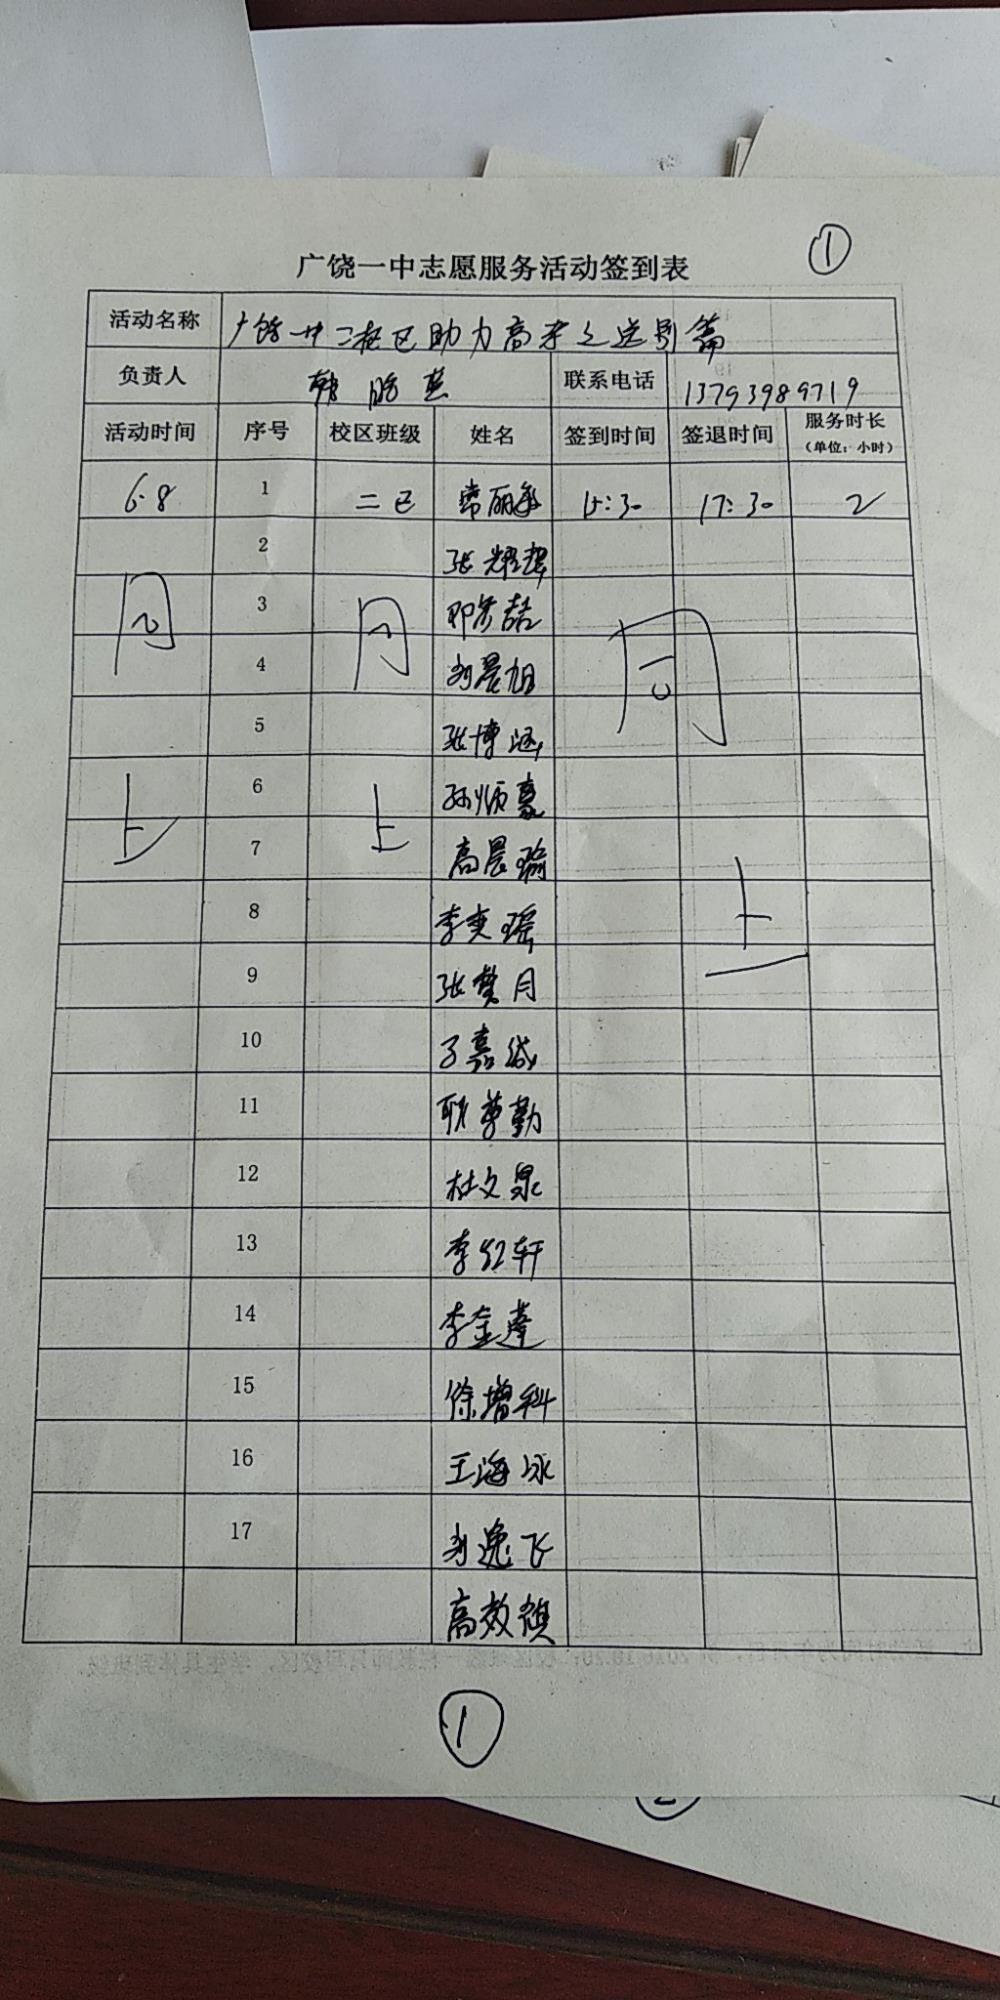 ①
广饶一中志愿服务活动签到表
活动名称 广饶一中二校区助力高考之送别篇
负责人 韩 联系电话 13793989719
活动时间 序号 校区班级 姓名 签到时间 签退时间 服务时长(单位:小时)
6.8 1 二区 常丽 15:30 17:30 2
2 张耀
3 邓彦喆
同 同 同
4 刘晨旭
5 张博涵
6 孙顺豪
上 上
7 高晨瑜
8 李奕瑶 上
9 张贊月
10 嘉
11 耿
12 杜文泉
13 李红轩
14 李金蓬
15 徐增科
16 王海冰
17 刘逸飞
高效
①